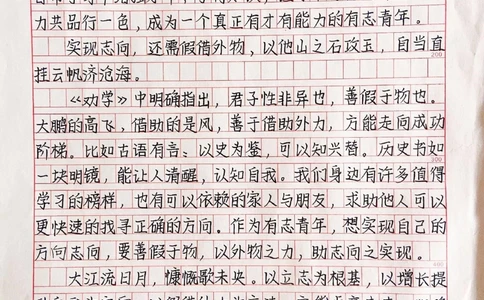 力共品行一色，成为一个真正有才有能力的有志青年。
实现志向，还需假借外物，以他山之石攻玉，自当直
挂云帆济沧海。
200
《劝学》中明确指出，君子性非异也，善假于物也。
大鹏的高飞，借助的是风，善于借助外力，方能走向成功
阶梯。比如古语有言：以史为鉴，可以知兴替。历史书如
一块明镜，能让人清醒，认知自我。我们身边有许多值得
学习的榜样，也有可以依赖的家人与朋友，求助他人可以
更快速的找寻正确的方向。作为有志青年，想实现自己的
方向志向，要善假于物，以外物之力，助志向之实现。
大江流日月，慷慨歌未央。以立志为根基，以增长提